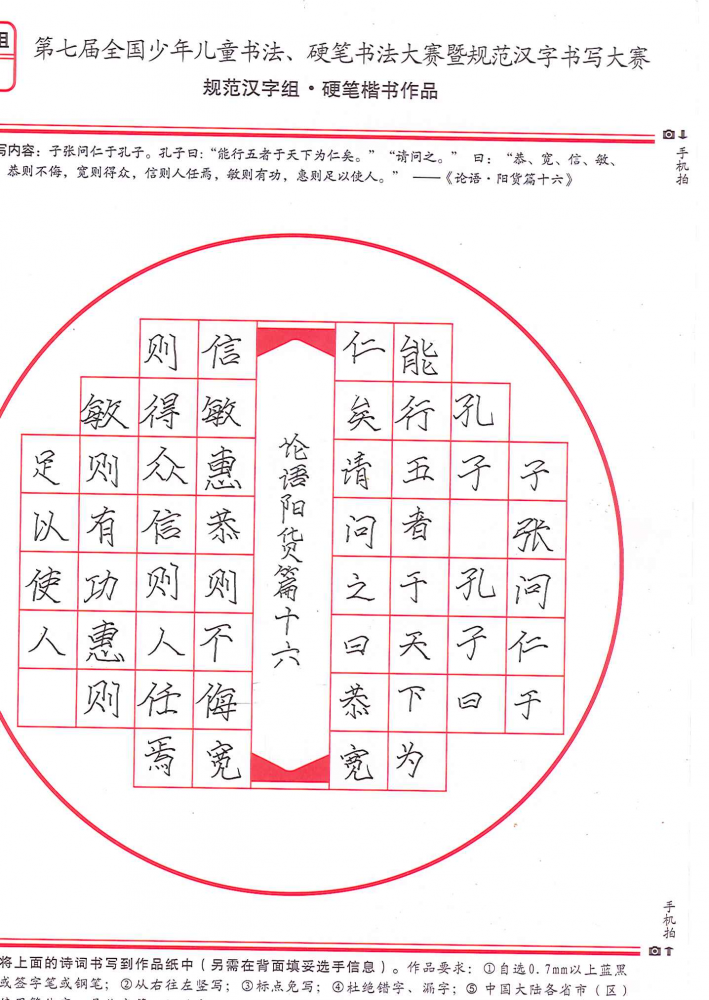 组
第七届全国少年儿童书法、硬笔书法大赛暨规范汉字书写大赛
规范汉字组·硬笔楷书作品
手机拍
写内容：子张问仁于孔子。孔子曰：“能行五者于天下为仁矣。”“请问之。” 曰：“恭、宽、信、敏、
恭则不侮，宽则得众，信则人任焉，敏则有功，惠则足以使人。” ——《论语·阳货篇十六》
子张问仁于
孔子 孔子曰
能行五者于天下为
仁矣请问之曰恭宽
论语阳货篇十六
信敏惠恭则不侮宽
则得众信则人任焉
敏则有功惠则
足以使人
手机拍
将上面的诗词书写到作品纸中（另需在背面填妥选手信息）。作品要求：①自选0.7mm以上蓝黑
或签字笔或钢笔；②从右往左竖写；③标点免写；④杜绝错字、漏字；⑤ 中国大陆各省市（区）